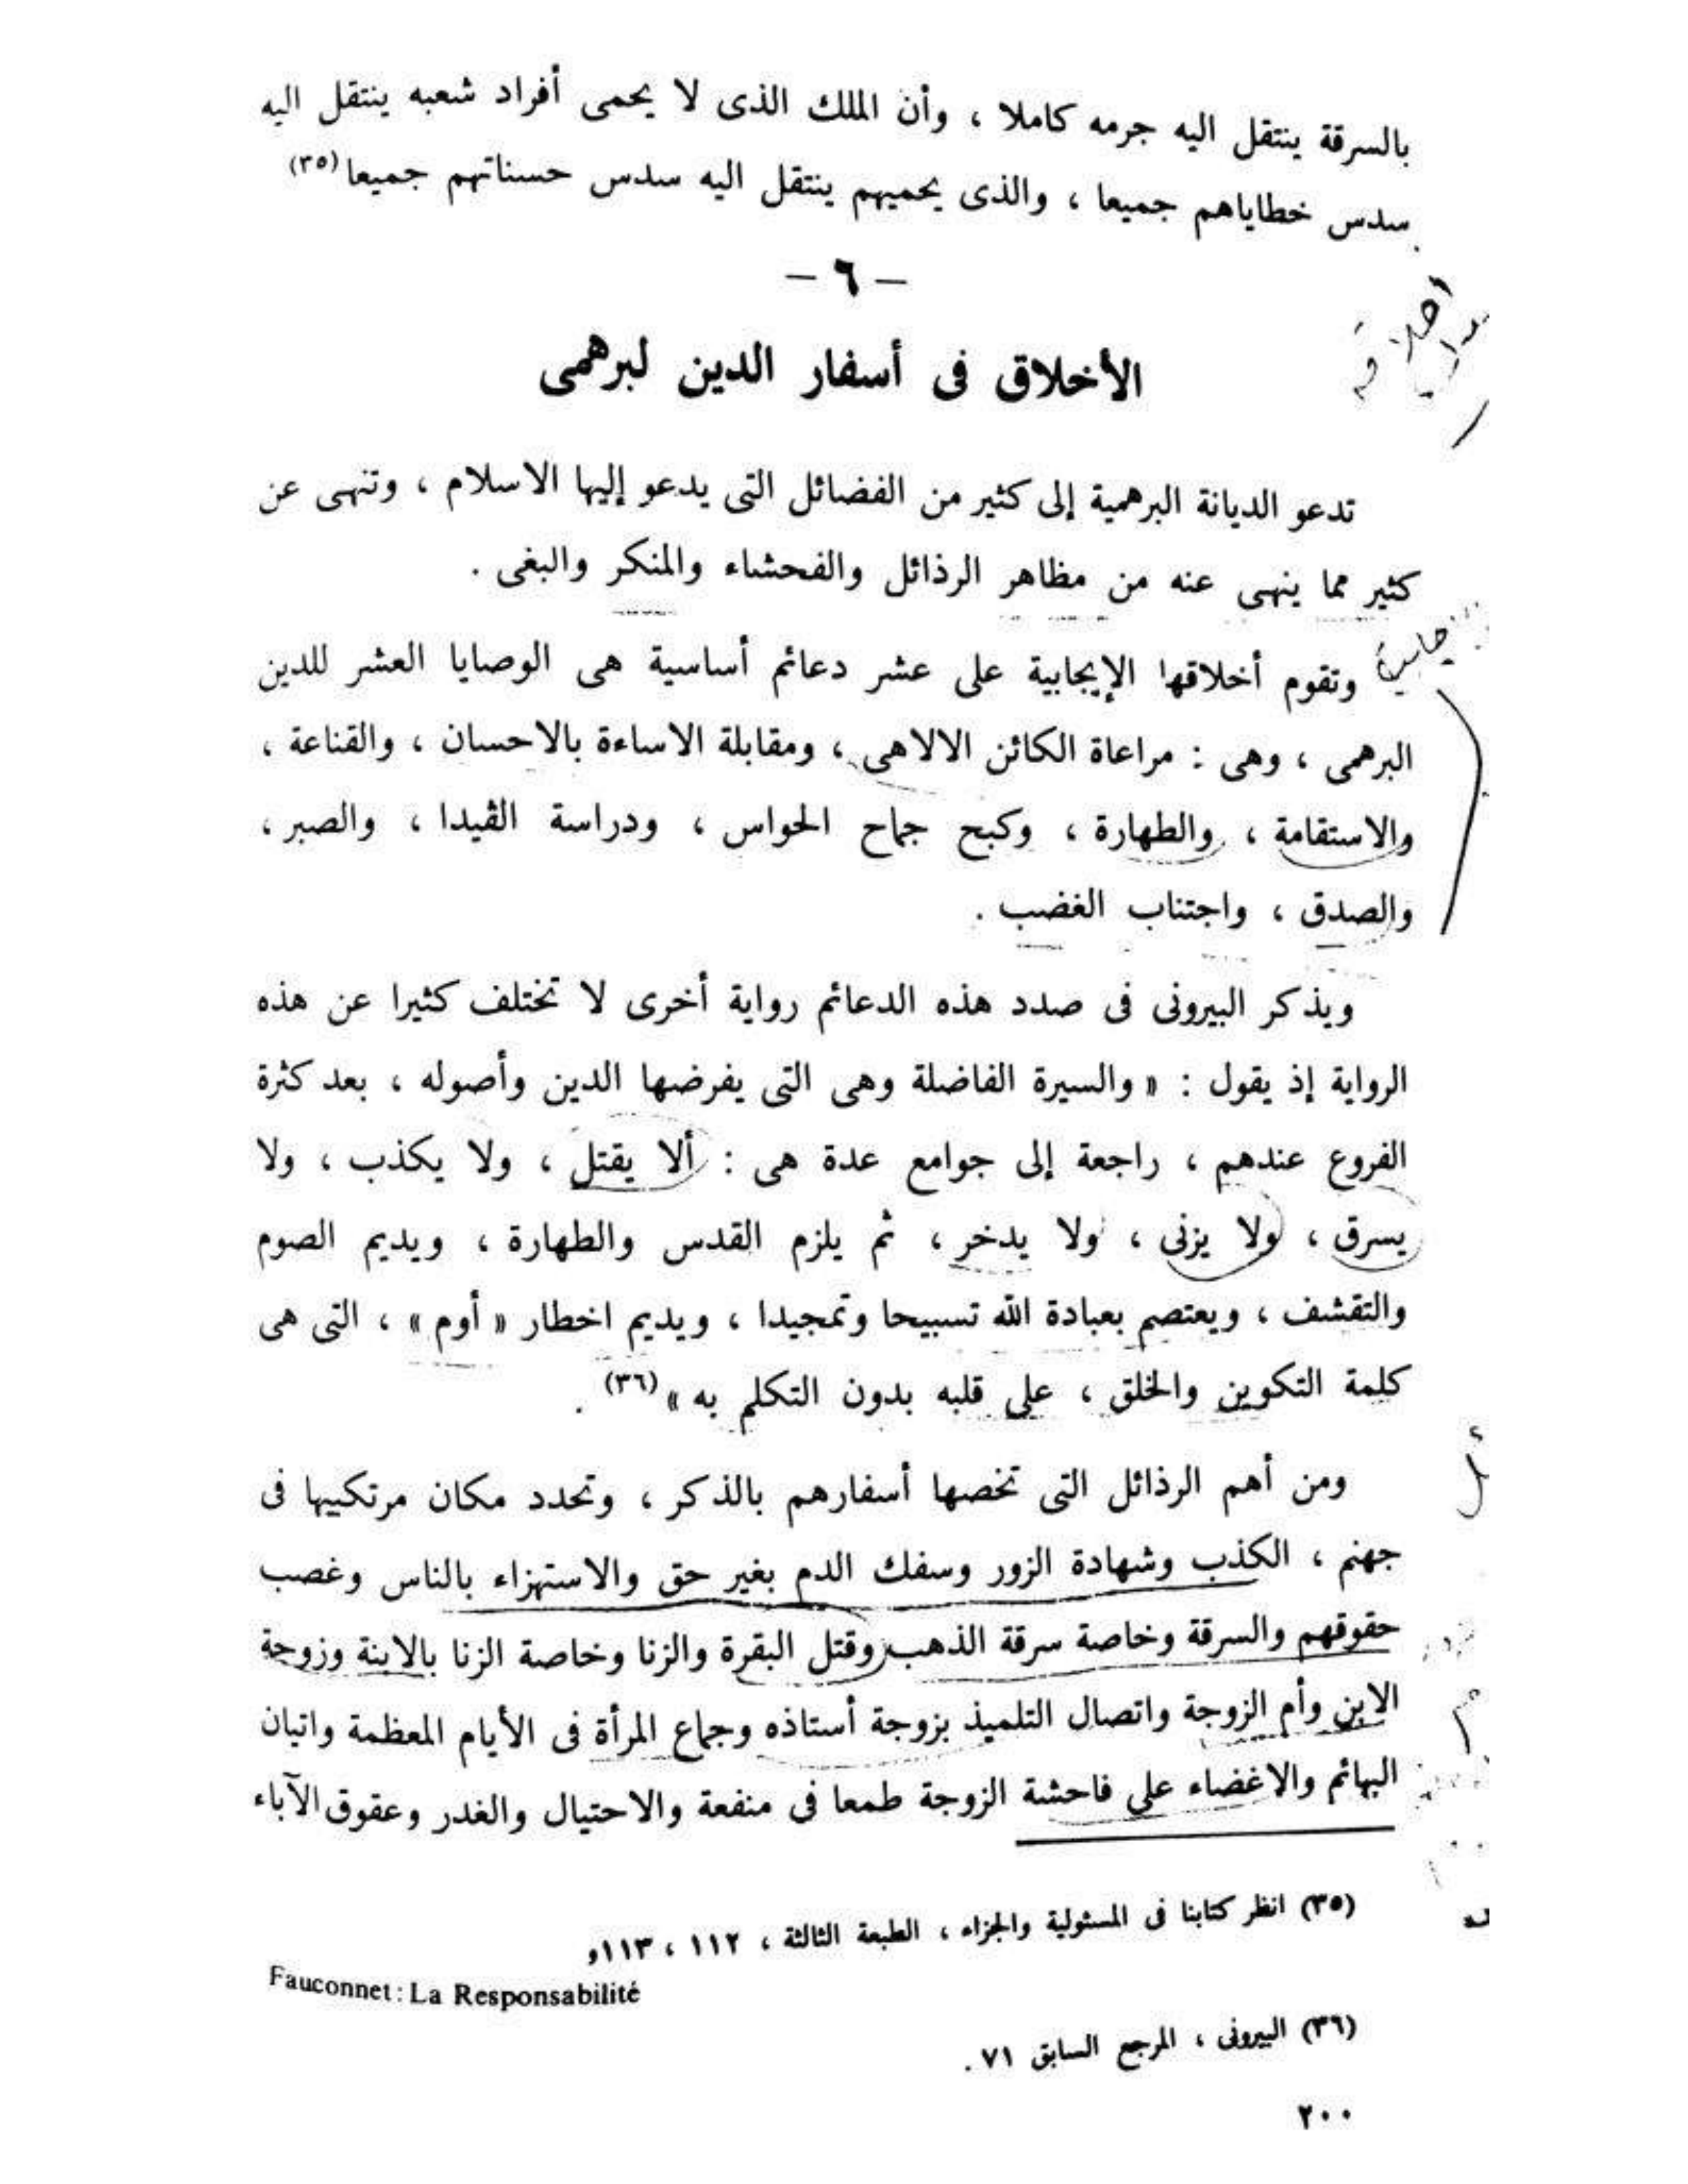 بالسرقة ينتقل اليه جرمه كاملا ، وأن الملك الذى لا يحمى أفراد شعبه ينتقل اليه
سدس خطاياهم جميعا ، والذى يحميهم ينتقل اليه سدس حسناتهم جميعا (٣٥)
– ٦ –
الأخلاق فى أسفار الدين لبرهمى
تدعو الديانة البرهمية إلى كثير من الفضائل التى يدعو إليها الاسلام ، وتنهى عن
كثير مما ينهى عنه من مظاهر الرذائل والفحشاء والمنكر والبغى .
وتقوم أخلاقها الإيجابية على عشر دعائم أساسية هى الوصايا العشر للدين
البرهمى ، وهى : مراعاة الكائن الالاهى ، ومقابلة الاساءة بالاحسان ، والقناعة ،
والاستقامة ، والطهارة ، وكبح جماح الحواس ، ودراسة الڤيدا ، والصبر ،
والصدق ، واجتناب الغضب .
ويذكر البيرونى فى صدد هذه الدعائم رواية أخرى لا تختلف كثيرا عن هذه
الرواية إذ يقول : « والسيرة الفاضلة وهى التى يفرضها الدين وأصوله ، بعد كثرة
الفروع عندهم ، راجعة إلى جوامع عدة هى : ألا يقتل ، ولا يكذب ، ولا
يسرق ، ولا يزنى ، ولا يدخر ، ثم يلزم القدس والطهارة ، ويديم الصوم
والتقشف ، ويعتصم بعبادة الله تسبيحا وتمجيدا ، ويديم اخطار « أوم » ، التى هى
كلمة التكوين والخلق ، على قلبه بدون التكلم به » (٣٦) .
ومن أهم الرذائل التى تخصها أسفارهم بالذكر ، وتحدد مكان مرتكبيها فى
جهنم ، الكذب وشهادة الزور وسفك الدم بغير حق والاستهزاء بالناس وغصب
حقوقهم والسرقة وخاصة سرقة الذهب وقتل البقرة والزنا وخاصة الزنا بالابنة وزوجة
الابن وأم الزوجة واتصال التلميذ بزوجة أستاذه وجماع المرأة فى الأيام المعظمة واتيان
البهائم والاغضاء على فاحشة الزوجة طمعا فى منفعة والاحتيال والغدر وعقوق الآباء
(٣٥) انظر كتابنا فى المسئولية والجزاء ، الطبعة الثالثة ، ١١٢ ، ١١٣و
Fauconnet : La Responsabilité
(٣٦) البيرونى ، المرجع السابق ٧١ .
٢٠٠